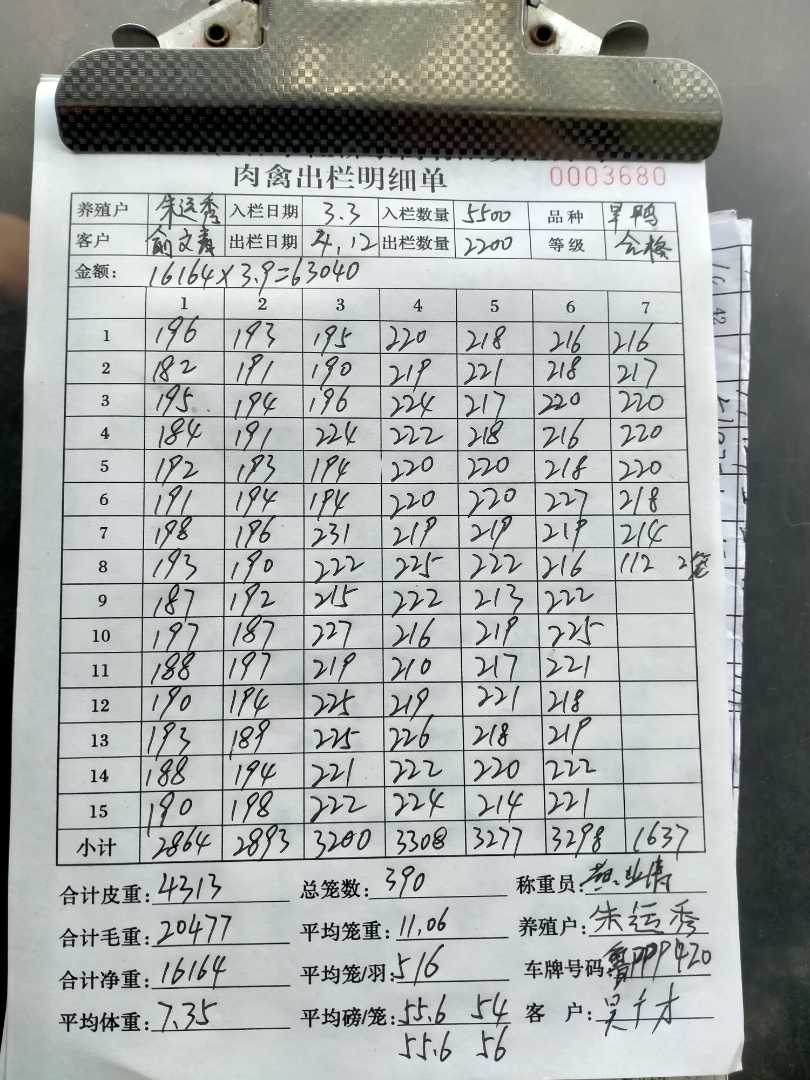 肉禽出栏明细单 0003680
养殖户 朱运秀 入栏日期 3.3 入栏数量 5500 品种 旱鸭
客户 俞文青 出栏日期 4.12 出栏数量 2200 等级 合格
金额: 16164×3.9=63040
1 2 3 4 5 6 7
1 196 193 195 220 218 216 216
2 182 191 190 219 221 218 217
3 195 194 196 224 217 220 220
4 184 191 224 222 218 216 220
5 192 193 194 220 220 218 220
6 191 194 194 220 220 227 218
7 198 196 231 219 219 219 214
8 193 190 222 225 222 216 112 2笼
9 187 192 215 222 213 222
10 197 187 227 216 219 225
11 188 197 219 210 217 221
12 190 194 225 219 221 218
13 193 189 225 226 218 219
14 188 194 221 222 220 222
15 190 198 222 224 214 221
小计 2864 2893 3200 3308 3277 3298 1637
合计皮重: 4313 总笼数: 390 称重员:
合计毛重: 20477 平均笼重: 11.06 养殖户: 朱运秀
合计净重: 16164 平均笼/羽: 516 车牌号码:
平均体重: 7.35 平均磅/笼: 55.6 54 客 户:
55.6 56
42